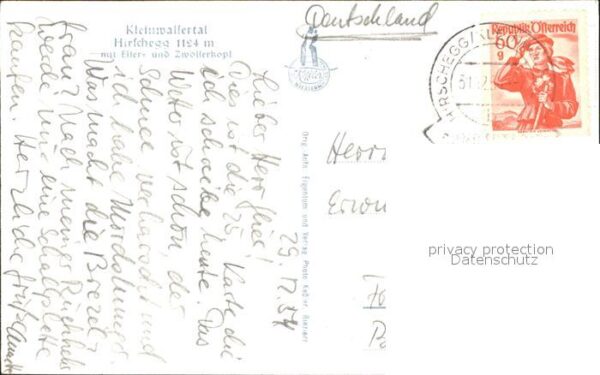 Kleinwalsertal
Hirschegg 1124 m
mit Elfer- und Zwölferkopf
Deutschland
HIRSCHEGG/KL
31.12.5
Republik Österreich
60
g
29.12.54
Lieber Herr
Dies ist die 25. Karte die
ich schreibe heute. Das
Wetter ist schön der
Schnee verharscht und
ich habe Mordshunger.
Was macht die Brezel
frau? Nach meiner Rückkehr
werde mir eine Schallplatte
kaufen. Herzliche Grüße
Orig. Aufn. Eigentum und Verlag Photo Keßler Riezlern
Herrn
privacy protection
Datenschutz